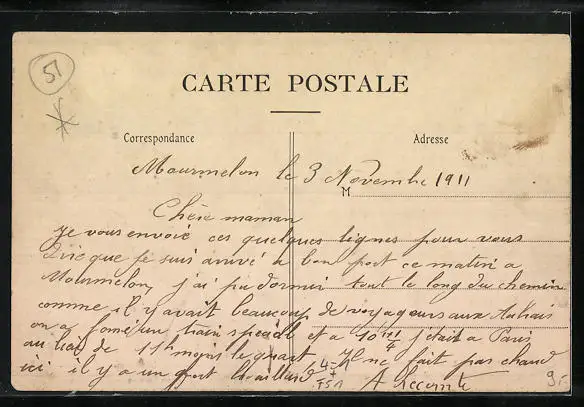 51
CARTE POSTALE
Correspondance
Adresse
Mourmelon le 3 Novembre 1911
M
Chère maman
je vous envoie ces quelques lignes pour vous
dire que je suis arrivé a bon port ce matin a
Mourmelon j'ai pu dormir tout le long du chemin
comme il y avait beaucoup de voyageurs aux Aubrais
on a formé un train special et a 10h ½ j'étais a Paris
au lieu de 11h moins le quart. Il ne fait pas chaud
ici il y a un fort brouillard
A Lecomte